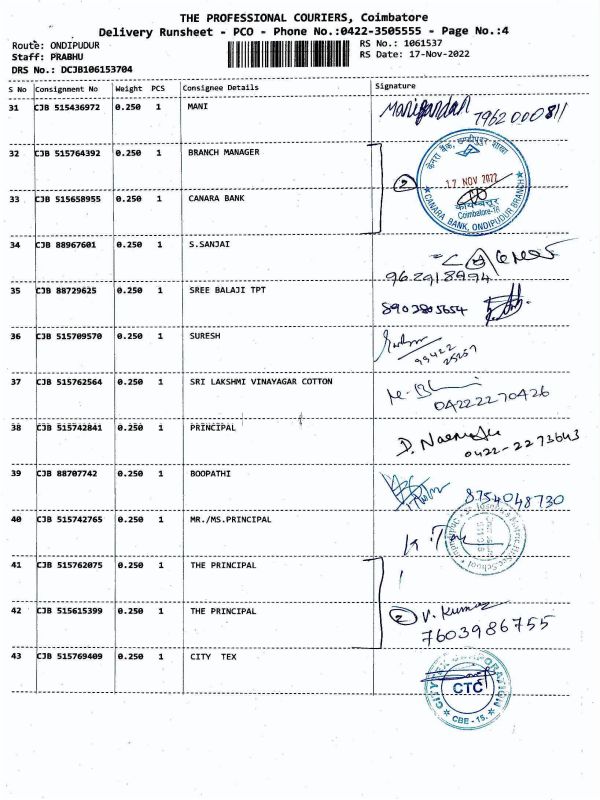 THE PROFESSIONAL COURIERS, Coimbatore
Delivery Runsheet - PCO - Phone No.:0422-3505555 - Page No.:4
Route: ONDIPUDUR RS No.: 1061537
Staff: PRABHU RS Date: 17-Nov-2022
DRS No.: DCJB106153704
S No Consignment No Weight PCS Consignee Details Signature
31 CJB 515436972 0.250 1 MANI Manigandan 7962000811
32 CJB 515764392 0.250 1 BRANCH MANAGER
केनरा बैंक,
17 NOV 2022
2
33 CJB 515658955 0.250 1 CANARA BANK
कोयम्बत्तूर
Coimbatore-16
★ CANARA BANK, ONDIPUDUR BRANCH ★
34 CJB 88967601 0.250 1 S.SANJAI
962918894
35 CJB 88729625 0.250 1 SREE BALAJI TPT 8903805654
36 CJB 515709570 0.250 1 SURESH
99422
25257
37 CJB 515762564 0.250 1 SRI LAKSHMI VINAYAGAR COTTON
04222270426
38 CJB 515742841 0.250 1 PRINCIPAL
0422-2273643
39 CJB 88707742 0.250 1 BOOPATHI 8754048730
40 CJB 515742765 0.250 1 MR./MS.PRINCIPAL
41 CJB 515762075 0.250 1 THE PRINCIPAL
42 CJB 515615399 0.250 1 THE PRINCIPAL 2 V. Kumar
7603986755
43 CJB 515769409 0.250 1 CITY TEX
CITY TEX CORPORATION
CTC
★ CBE - 15. ★